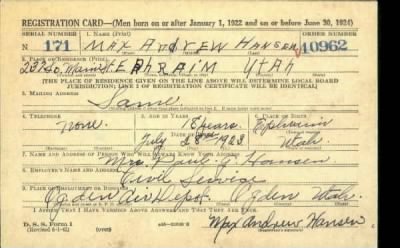 REGISTRATION CARD—(Men born on or after January 1, 1922 and on or before June 30, 1924)
SERIAL NUMBER 1. NAME (Print) ORDER NUMBER
N 171 MAX ANDREW HANSEN 10962
2. PLACE OF RESIDENCE (Print)
EPHRAIM UTAH
[THE PLACE OF RESIDENCE GIVEN ON THE LINE ABOVE WILL DETERMINE LOCAL BOARD
JURISDICTION; LINE 2 OF REGISTRATION CERTIFICATE WILL BE IDENTICAL]
3. MAILING ADDRESS
Same
4. TELEPHONE 5. AGE IN YEARS 6. PLACE OF BIRTH
None 18 years Ephraim
July 28 1923 Utah
7. NAME AND ADDRESS OF PERSON WHO WILL ALWAYS KNOW YOUR ADDRESS
Mrs. Paul G. Hansen
8. EMPLOYER'S NAME AND ADDRESS
Civil Service
9. PLACE OF EMPLOYMENT OR BUSINESS
Ogden Depot Ogden Utah
I AFFIRM THAT I HAVE VERIFIED ABOVE ANSWERS AND THAT THEY ARE TRUE.
D. S. S. Form 1
Max Andrew Hansen